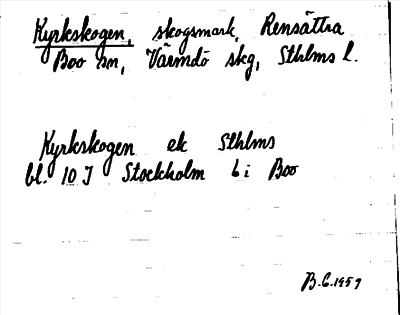 Kyrkskogen, skogsmark, Rensättra
Boo sn, Värmdö skg, Sthlms l.
Kyrkskogen ek Sthlms
bl. 10 J Stockholm 6 i Boo
B.C. 1959